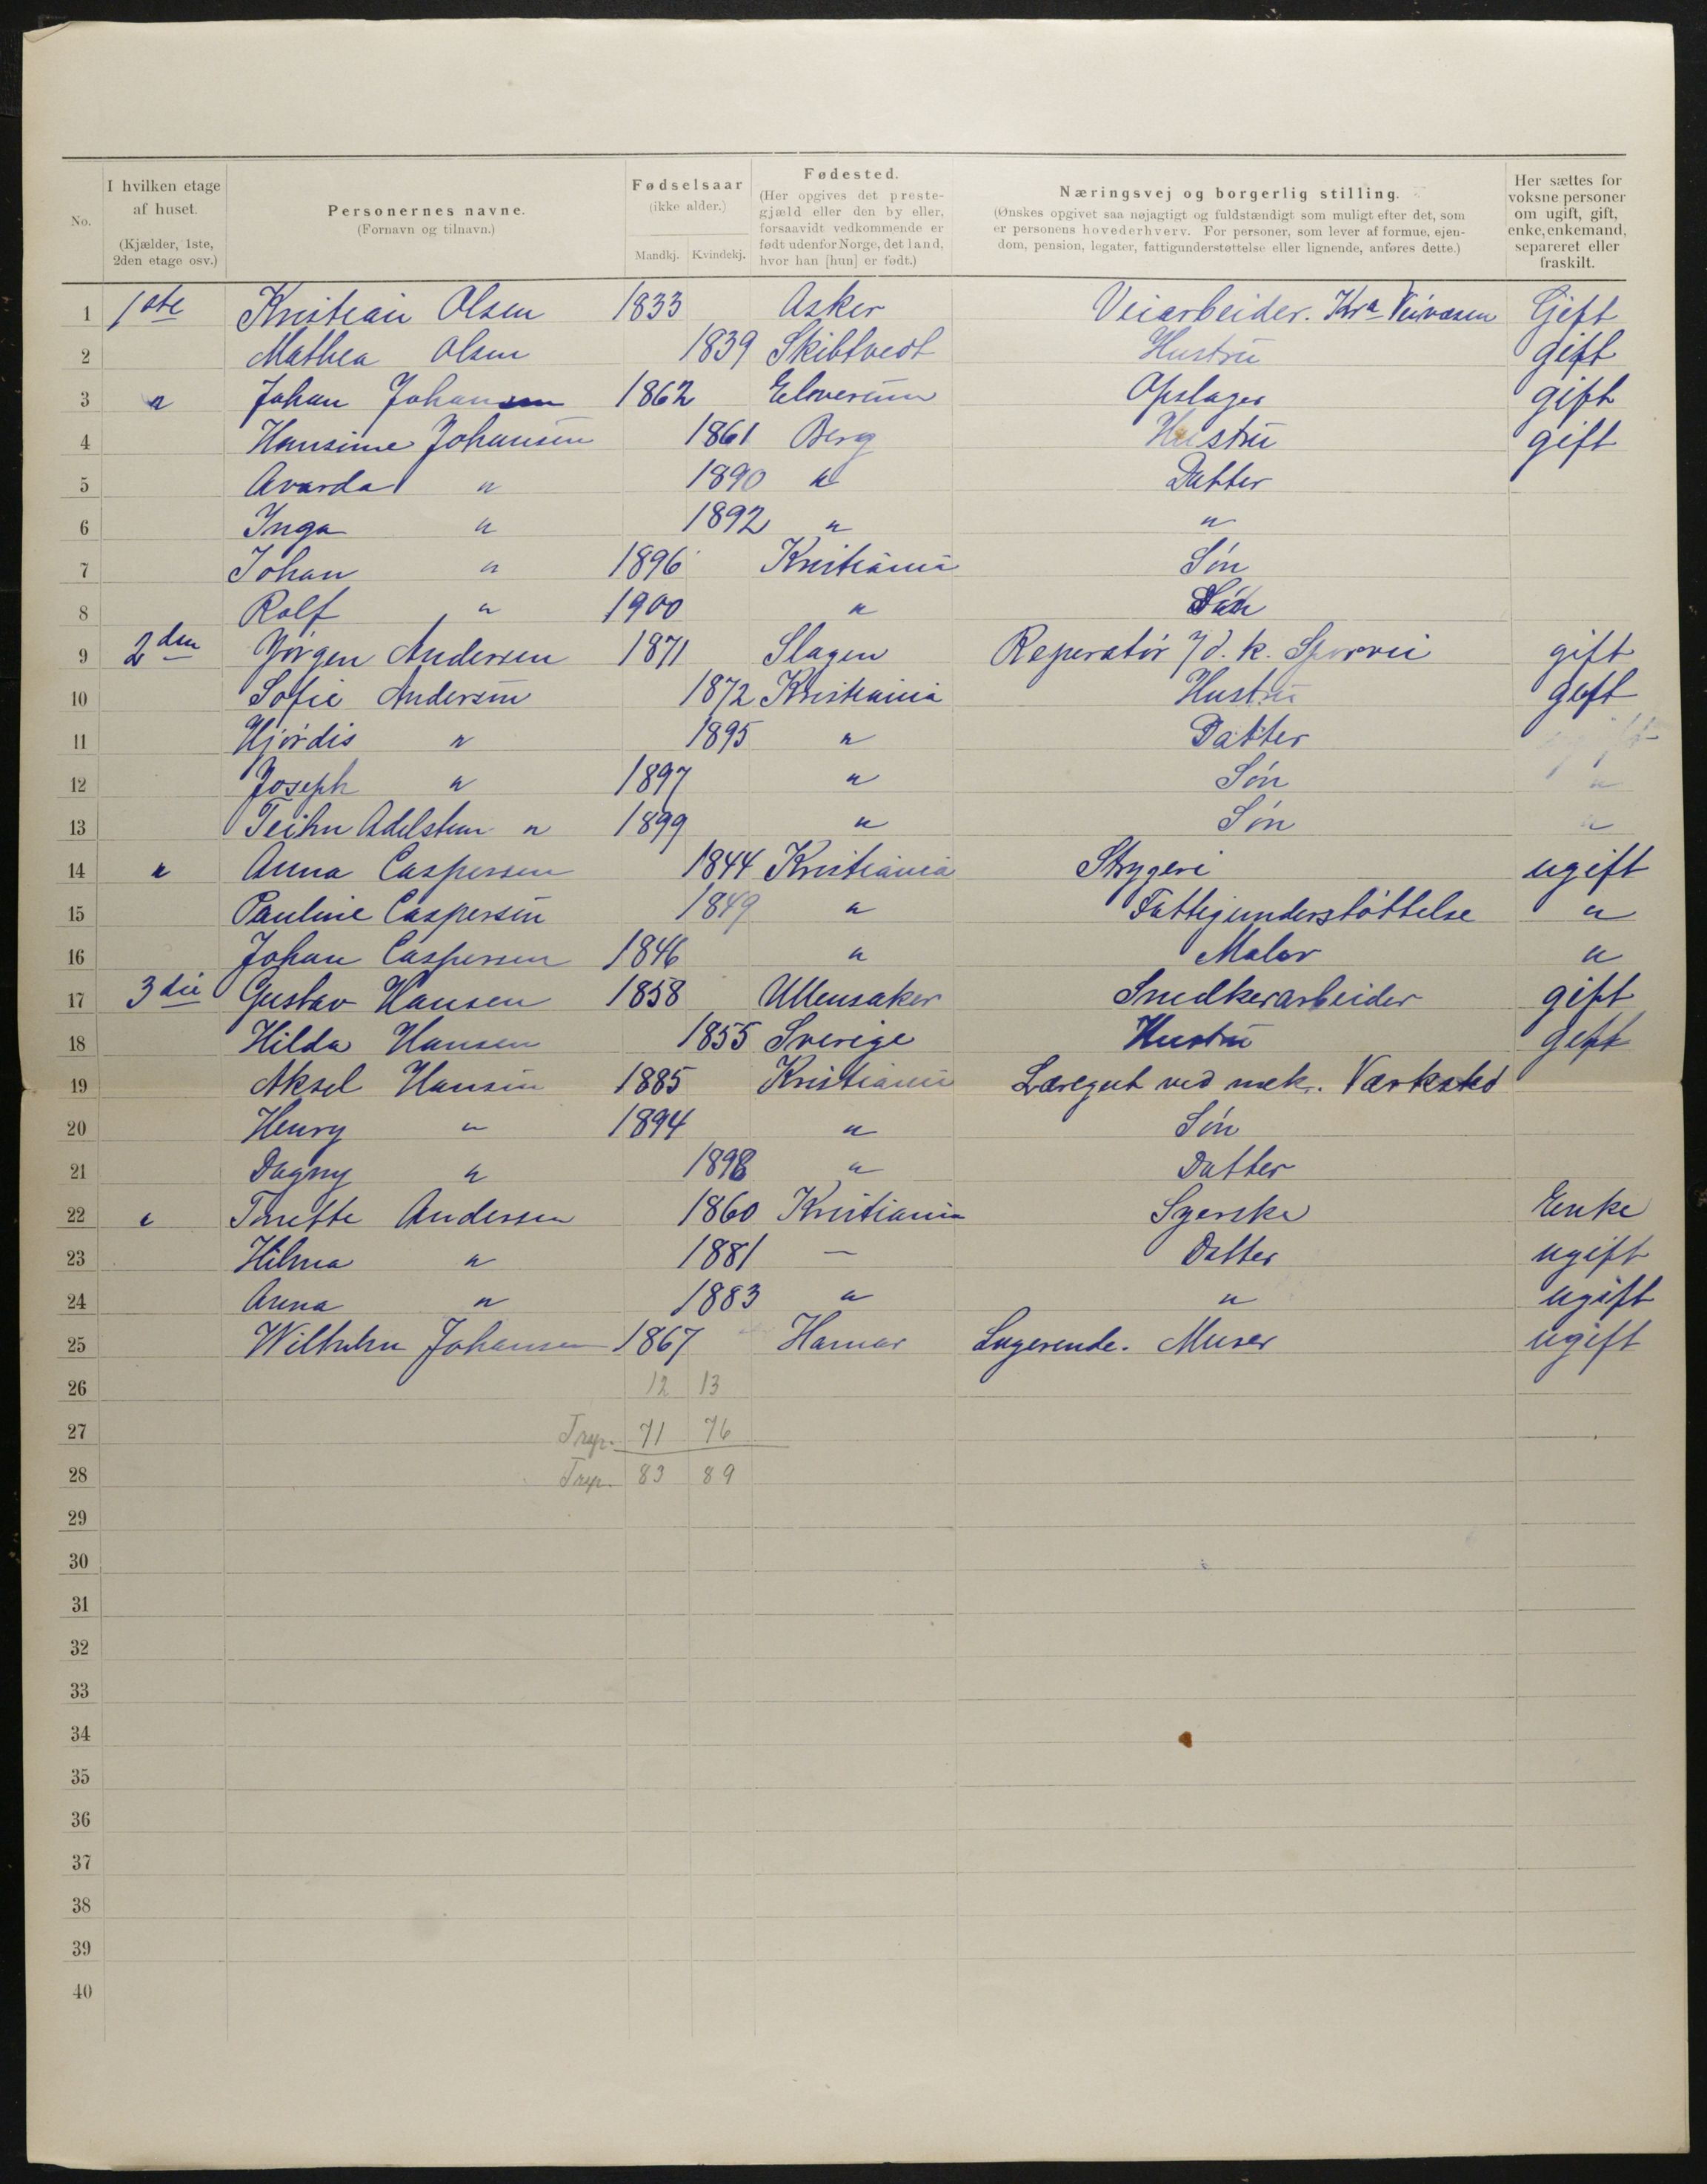 No.
I hvilken etage af huset. (Kjælder, 1ste, 2den etage osv.)
Personernes navne. (Fornavn og tilnavn.)
Fødselsaar (ikke alder.) Mandkj. Kvindekj.
Fødested. (Her opgives det prestegjæld eller den by eller, forsaavidt vedkommende er født udenfor Norge, det land, hvor han [hun] er født.)
Næringsvej og borgerlig stilling. (Ønskes opgivet saa nøjagtigt og fuldstændigt som muligt efter det, som er personens hovederhverv. For personer, som lever af formue, ejendom, pension, legater, fattigunderstøttelse eller lignende, anføres dette.)
Her sættes for voksne personer om ugift, gift, enke, enkemand, separeret eller fraskilt.
1 1ste Kristian Olsen 1833 Asker Veiarbeider. Kra Veivæsen Gift
2 Mathea Olsen 1839 Skibtvedt Hustru gift
3 " Johan Johansen 1862 Elverum Opslager gift
4 Hansine Johansen 1861 Berg Hustru gift
5 Avarda " 1890 " Datter
6 Inga " 1892 " "
7 Johan " 1896 Kristiania Søn
8 Rolf " 1900 " Søn
9 2den Jørgen Andersen 1871 Slagen Reperatør d. k. Sporvei gift
10 Sofie Andersen 1872 Kristiania Hustru gift
11 Hjørdis " 1895 " Datter
12 Joseph " 1897 " Søn "
13 Adelsten " 1899 " Søn "
14 " Anna Caspersen 1844 Kristiania Strygeri ugift
15 Pauline Caspersen 1849 " Fattigunderstøttelse "
16 Johan Caspersen 1846 " Maler "
17 3die Gustav Hansen 1858 Ullensaker Snedkerarbeider gift
18 Hilda Hansen 1855 Sverige Hustru gift
19 Aksel Hansen 1885 Kristiania Læregut ved mek. Værksted
20 Henry " 1894 " Søn
21 Dagny " 1898 " Datter
22 " Andersen 1860 Kristiania Syerske Enke
23 Hilma " 1881 — Datter ugift
24 Anna " 1883 " " ugift
25 Wilhelm Johansen 1867 Hamar Logerende. Murer ugift
26 12 13
27 Trsp. 71 76
28 Trsp. 83 89
29
30
31
32
33
34
35
36
37
38
39
40